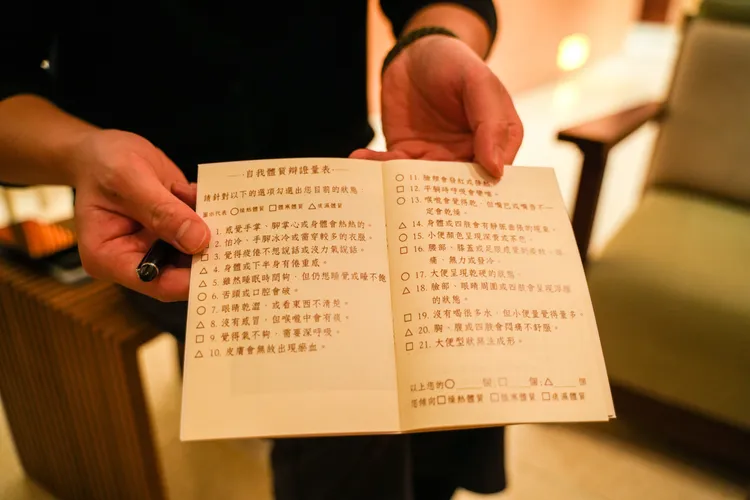 自我體質辯證量表
請針對以下的選項勾選出您目前的狀態
○燥熱體質 □虛寒體質 △痰濕體質
1. 感覺手掌、腳掌心或身體會熱熱的。
2. 怕冷、手腳冰冷或需穿較多的衣服。
□ 3. 覺得疲倦不想說話或沒力氣說話。
△ 4. 身體或下半身有倦重感。
△ 5. 雖然睡眠時間夠，但仍想睡覺或睡不飽
○ 6. 舌頭或口腔會破。
○ 7. 眼睛乾澀、或看東西不清楚。
△ 8. 沒有感冒，但喉嚨中會有痰。
□ 9. 覺得氣不夠，需要深呼吸。
△ 10. 皮膚會無故出現瘀血。
○ 11. 臉頰會發紅或發熱。
□ 12. 平躺時呼吸會喘喘。
○ 13. 喉嚨會覺得乾，但嘴巴或嘴唇不一
定會乾燥。
△ 14. 身體或四肢會有
○ 15. 小便顏色呈現深黃或茶色。
□ 16. 腰部、膝蓋或足跟感覺到痠軟、痠
痛、無力或發冷。
○ 17. 大便呈現乾硬的狀態。
△ 18. 臉部、眼睛周圍或四肢會呈現浮腫
的狀態。
□ 19. 沒有喝很多水，但小便量覺得量多。
△ 20. 胸、腹或四肢會悶痛不舒服。
□ 21. 大便型狀無法成形。
以上您的○ 個，□ 個，△ 個
您傾向□燥熱體質 □虛寒體質 □痰濕體質